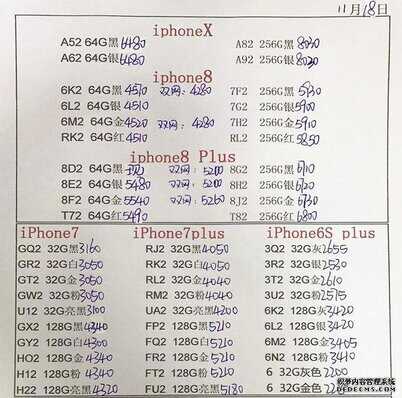 11月18日
iphoneX
A52 64G黑6480 A82 256G黑8030
A62 64G银6480 A92 256G银8020
iphone8
6K2 64G黑4570 双网:4280 7F2 256G黑5930
6L2 64G银4510 7G2 256G银5900
6M2 64G金4520 双网:4280 7H2 256G金5910
RK2 64G红4510 RL2 256G红5850
iphone8 Plus
8D2 64G黑 双网:5200 8G2 256G黑6710
8E2 64G银5480 双网:5200 8H2 256G银6720
8F2 64G金5540 双网:5260 8J2 256G金6730
T72 64G红5490 T82 256G红6800
iPhone7 iPhone7plus iPhone6S plus
GQ2 32G黑3160 RJ2 32G黑4050 3Q2 32G灰2655
GR2 32G白3050 RK2 32G白4050 3R2 32G银2530
GT2 32G金3050 RL2 32G金4040 3T2 32G金2610
GW2 32G粉3050 RM2 32G粉4040 3U2 32G粉2575
U12 32G亮黑3100 UA2 32G亮黑4200 6K2 128G灰3420
GX2 128G黑4340 FP2 128G黑5210 6L2 128G银3420
GY2 128G白4300 FQ2 128G白5210 6M2 128G金3405
HO2 128G金4340 FR2 128G金5210 6N2 128G粉3410
H12 128G粉4340 FT2 128G粉5210 6 32G灰色2200
H22 128G亮黑4320 FU2 128G亮黑5180 6 32G金色2200